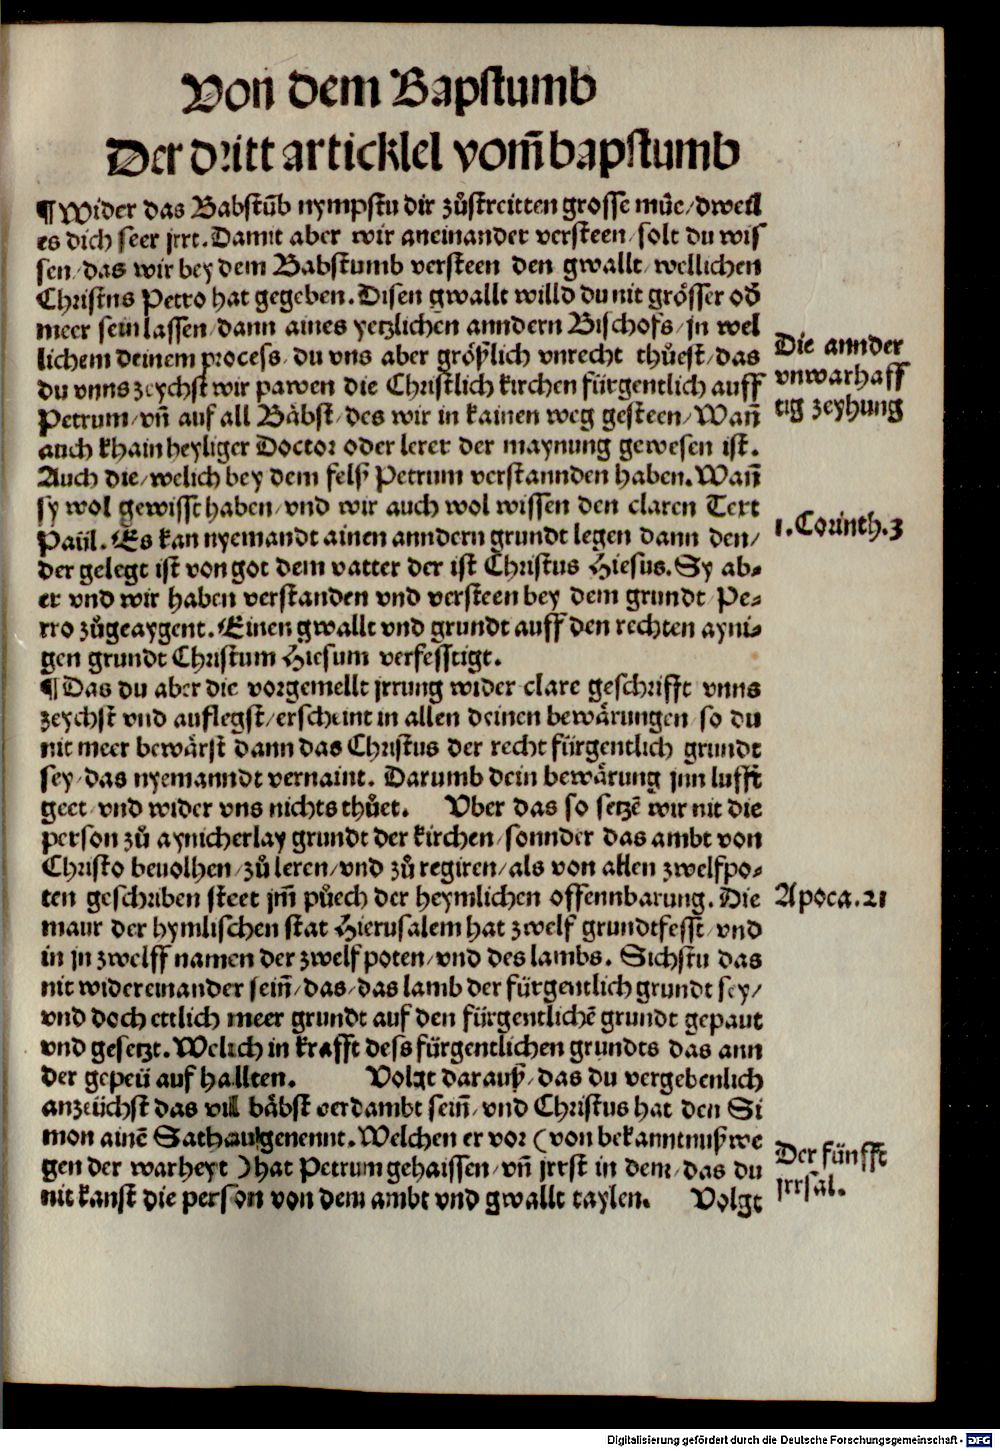 Von dem Bapstumb
Der dritt articklel vom̃ bapstumb
¶ Wider das Babstũb nympstu dir zůstreitten grosse můe/dweil
es dich seer jrrt. Damit aber wir aneinander versteen/solt du wis
sen/das wir bey dem Babstumb versteen den gwallt/wellichen
Christus Petro hat gegeben. Disen gwallt willd du nit grösser oď
meer sein lassen/dann aines yetzlichen anndern Bischofs/jn wel
lichem deinem process/du vns aber größlich vnrecht thůest/das
du vnns zeychst wir pawen die Christlich kirchen fürgentlich auff
Petrum/vñ auf all Bäbst/des wir in kainen weg gesteen/Wañ
auch khain heyliger Doctor oder lerer der maynung gewesen ist.
Auch die/welich bey dem felß Petrum verstannden haben. Wañ
sy wol gewisst haben/vnd wir auch wol wissen den claren Text
Paüli. Es kan nyemandt ainen anndern grundt legen dann den/
der gelegt ist von got dem vatter der ist Christus Hiesus. Sy ab⸗
er vnd wir haben verstanden vnd versteen bey dem grundt Pe⸗
tro zůgeaygent. Einen gwallt vnd grundt auff den rechten ayni⸗
gen grundt Christum Hiesum verfesstigt.
¶ Das du aber die vorgemellt jrrung wider clare geschrifft vnns
zeychst vnd auflegst/erscheint in allen deinen bewärungen so du
nit meer bewärst dann das Christus der recht fürgentlich grundt
sey/das nyemanndt vernaint. Darumb dein bewärung jnn lufft
geet/vnd wider vns nichts thůet. Vber das so setzẽ wir nit die
person zů aynicherlay grundt der kirchen/sonnder das ambt von
Christo beuolhen/zů leren/vnd zů regiren/als von allen zwelfpo⸗
ten geschriben steet jm̃ půech der heymlichen offennbarung. Die
maur der hymlischen stat Hierusalem hat zwelf grundtfesst/vnd
in jn zwelff namen der zwelf poten/vnd des lambs. Sichstu das
nit widereinander seiñ/das/das lamb der fürgentlich grundt sey/
vnd doch ettlich meer grundt auf den fürgentlichẽ grundt gepaut
vnd gesetzt. Welich in krafft dess fürgentlichen grundts das ann
der gepeü auf hallten. Volgt darauß/das du vergebenlich
anzeüchst das vill bäbst verdambt seiñ/vnd Christus hat den Si
mon ainẽ Sathan genennt. Welchen er vor (von bekanntnuß we
gen der warheyt) hat Petrum gehaissen/vñ jrrst in dem/das du
nit kanst die person von dem ambt vnd gwallt taylen. Volgt
Die annder
vnwarhaff
tig zeyhung
1. Corinth. 3
Apoca. 21
Der fünfft
jrrsal.
Digitalisierung gefördert durch die Deutsche Forschungsgemeinschaft - DFG